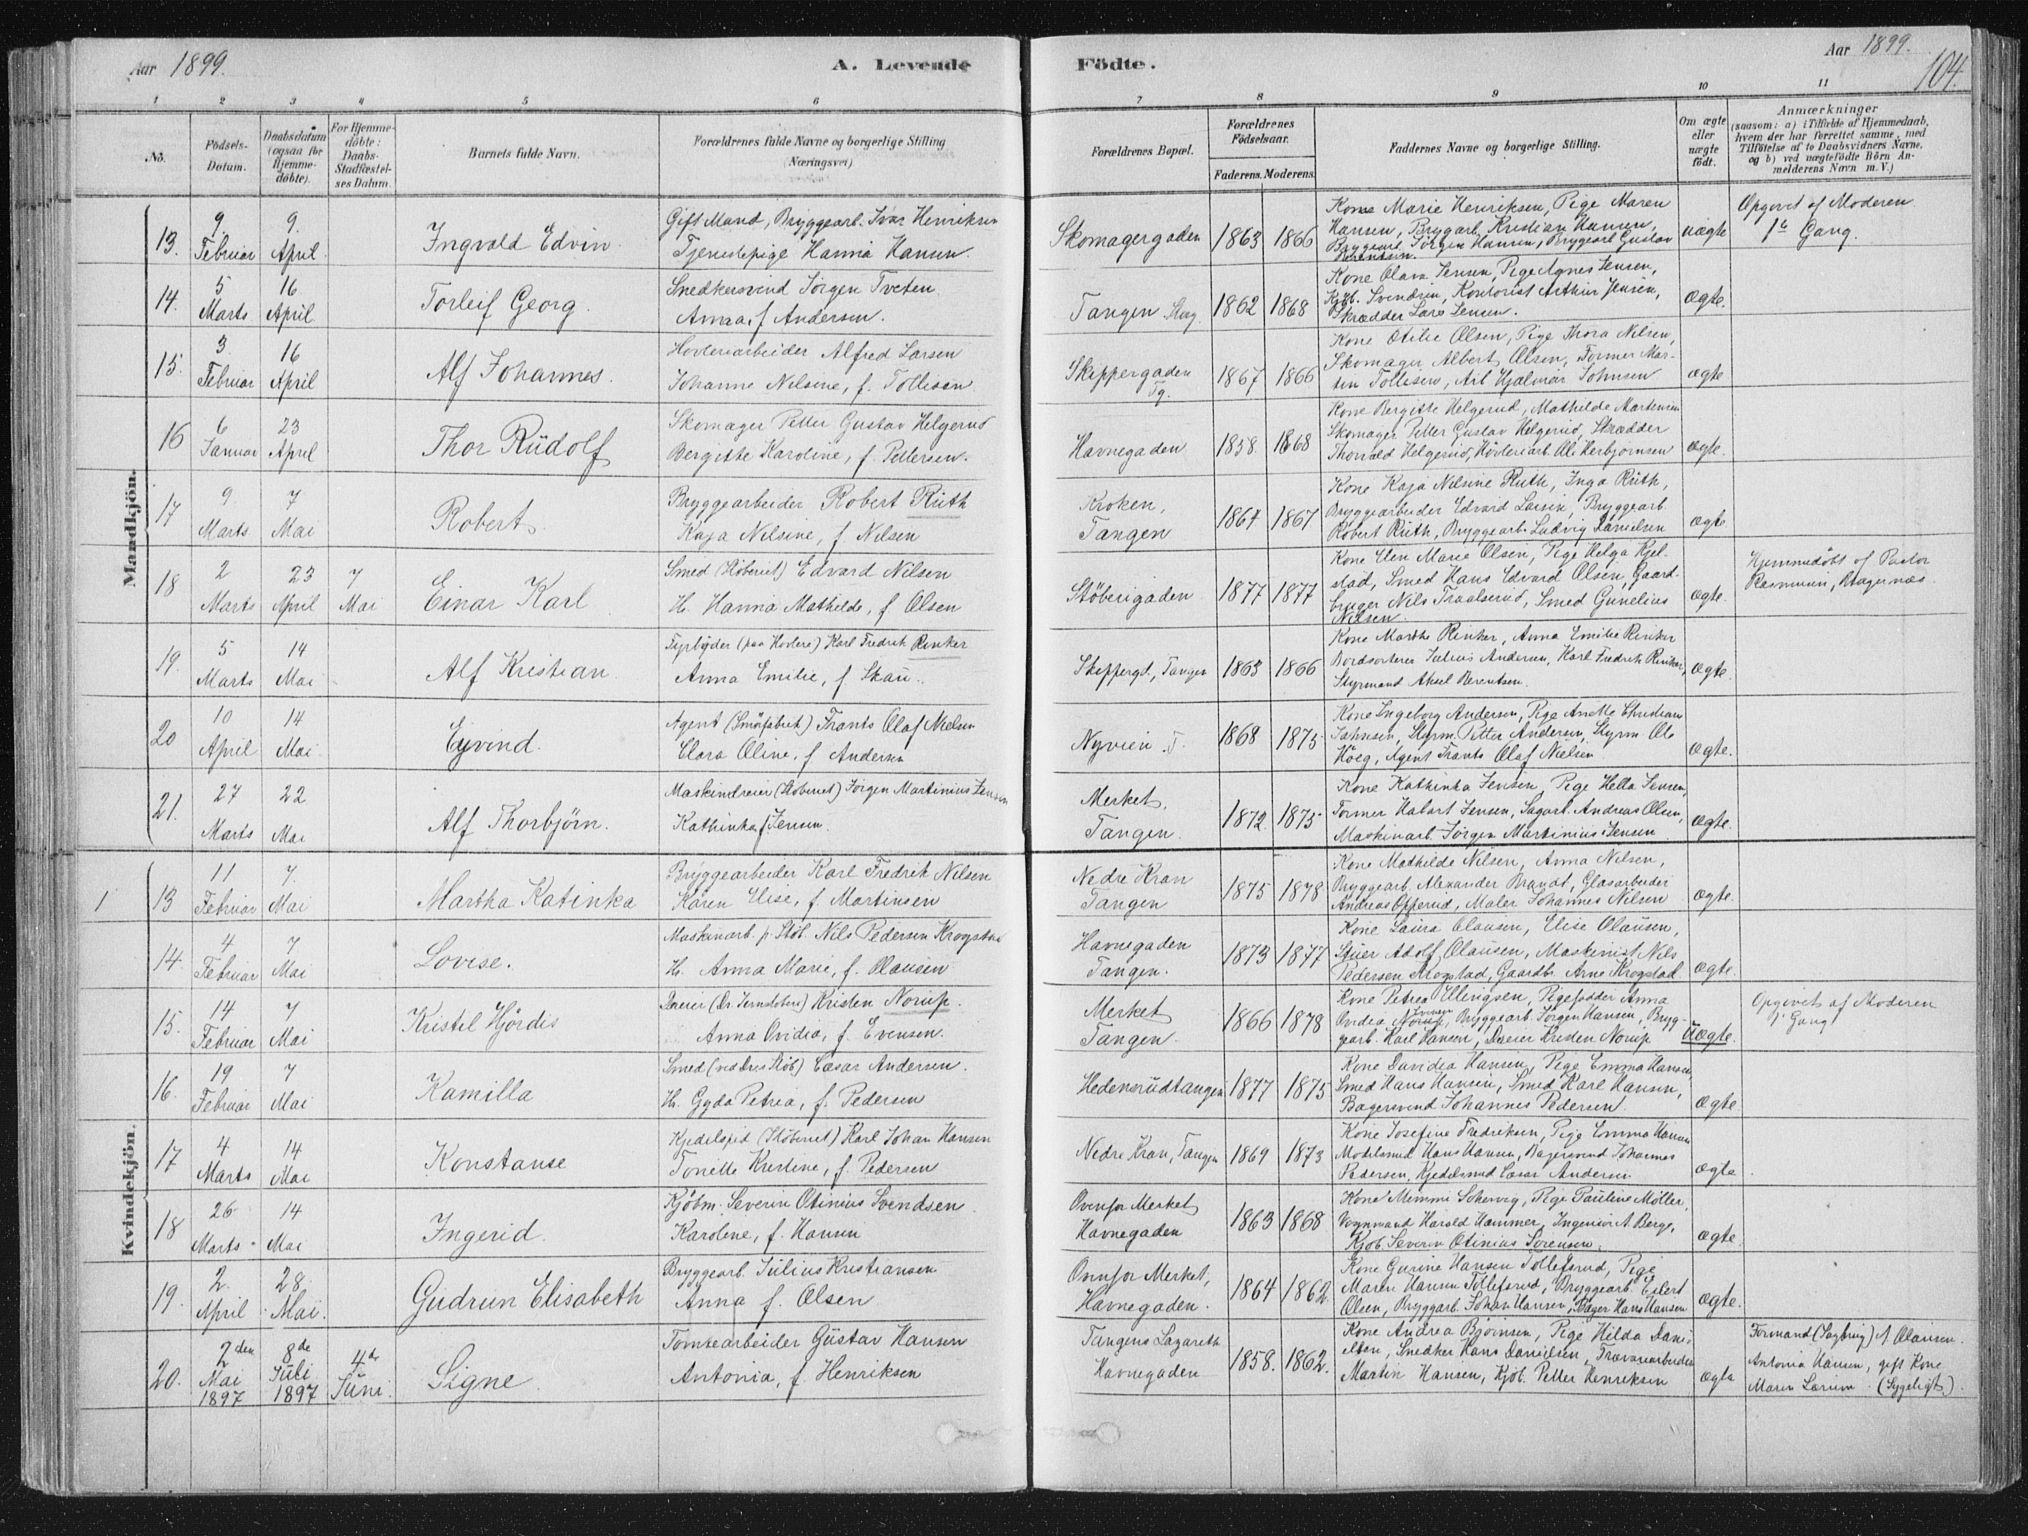 Aar 1899.
A. Levende
Födte.
Aar 1899.
104.
1 2 3 4 5 6 7 8 9 10 11
No.
Födsels-Datum.
Daabsdatum (ogsaa för Hjemmedöbte).
For Hjemmedöbte: Daabs-Stadfæstelses Datum.
Barnets fulde Navn.
Forældrenes fulde Navne og borgerlige Stilling (Næringsvei)
Forældrenes Bopæl.
Forældrenes Födselsaar.
Faderens. Moderens.
Faddernes Navne og borgerlige Stilling.
Om ægte eller uægte födt.
Anmærkninger
(saasom: a) i Tilfælde af Hjemmedaab, hvem der har forrettet samme, med Tilföielse af to Daabsvidners Navne, og b) ved uægtefödte Börn Anmelderens Navn m. V.)
Mandkjön.
13. 9. Februar 9. April. Ingvald Edvin.
Gift Mand, Bryggearb. Ivar Henriksen
Tjenestepige Hanna Hansen.
Skomagergaden 1863 1866
Kone Marie Henriksen, Pige Maren
Hansen, Brygarb. Kristian Hansen,
Bryggearb. Jörgen Hansen, Bryggearb. Gustav
uægte
Opgivet af Moderen
1ste Gang.
14. 5 Marts 16 April Torleif Georg.
Snedkersvend Jörgen Tveten.
Anna, f. Andersen.
Tangen 1862 1868
Kone Olava Jensen, Pige Agnes Jensen,
Kjöb. Svendsen, Kontorist Arthur Jensen,
Skrædder Lars Jensen.
Ægte.
15. 3. Februar 16 April Alf Johannes.
Hövleriarbeider Alfred Larsen
Johanne Nilsine, f. Tollisen.
Skippergaden Tg. 1867 1866
Kone Otilie Olsen, Pige Thora Nilsen,
Skomager Albert Olsen, Former Mar-
tin Tollisen, Arb Hjalmar Johnsen
ægte
16 6 Januar 23 April Thor Rudolf
Skomager Petter Gustav Helgerud
Bergitte Karoline, f. Pettersen.
Havnegaden 1858. 1868
Kone Bergitte Helgerud, Mathilde Martensen
Skomager Petter Gustav Helgerud, Skrædder
Thorvald Helgerud, Hövleriarb. Ole Herbjörnsen
ægte.
17 9 Marts 7 Mai Robert.
Bryggearbeider Robert Ruth
Kaja Nilsine, f. Nilsen
Kroken, Tangen 1867 1867
Kone Kaja Nilsine Ruth, Inga Ruth,
Bryggearbeider Edvard Larsen, Bryggearb.
Robert Ruth, Bryggearb. Ludvig Danielsen
ægte
18 2 Marts 23 April 7 Mai Einar Karl.
Smed (Stöberiet) Edvard Nilsen
H. Hanna Mathilde, f. Olsen
Stöberigaden 1877 1877
Kone Elen Marie Olsen, Pige Helga Kjel-
stad, Smed Hans Edvard Olsen, Gaard-
bruger Nils Traalserud, Smed Gunelius
Nilsen.
ægte.
Hjemmedöbt af Pastor
Rasmussen, Bragernæs.
19. 5 Marts 14 Mai Alf Kristian.
Fyrböder (paa Hövlere) Karl Fredrik Rinker
Anna Emilie, f. Skau.
Skippergd., Tangen 1863 1866
Kone Marthe Rinker, Anna Emilie Rinker
Bordsorterer Julius Andersen, Karl Fredrik Rinker,
Styrmand Aksel Berentsen.
ægte.
20 10 April 14 Mai. Eyvind.
Agent (Smörfabrik) Frants Olaf Nielsen
Clara Oline, f. Andersen
Nyveien T. 1868 1875
Kone Ingeborg Andersen, Pige Anette Christiane
Johnsen, Styrm. Petter Andersen, Styrm Ole
Höeg, Agent Frants Olaf Nielsen
ægte.
21. 27 Marts 22 Mai Alf Thorbjörn.
Maskindreier (Stöberiet) Jörgen Martinius Jensen
Kathinka, f. Jensen.
Merket, Tangen. 1872. 1875
Kone Kathinka Jensen, Pige Hella Jensen,
Former Habart Jensen, Sagarb. Andreas Olsen,
Maskinarb. Jörgen Martinius Jensen
ægte.
Kvindekjön.
1 13 11 Februar 7. Mai Martha Katinka
Bryggearbeider Karl Fredrik Nilsen
Karen Elise, f. Martinsen
Nedre Kran Tangen 1875 1878
Kone Mathilde Nilsen, Anna Nilsen,
Bryggearb. Alexander Brandt, Glasarbeider
Andreas Opperud, Maler Johannes Nilsen
ægte.
14. 4 Februar 7 Mai Lovise.
Maskinarb. p. Stöb. Nils Pedersen Krogstad
H. Anna Marie, f. Olausen
Havnegaden Tangen. 1873 1877
Kone Laura Olausen, Elise Olausen,
Stuer Adolf Olausen, Maskinist Nils
Pedersen Krogstad, Gaardbr. Arne Krogstad
ægte.
15. 14 Februar 7 Mai Kristel Hjördis
Dreier (Dr. Jernstöberi) Kristen Norup.
Anna Ovidia, f. Evensen.
Merket Tangen. 1866 1878
Kone Petrea Ellingsen, Pigefadder Anna
Ovidea Norup, Bryggearb. Jörgen Hansen, Bryg-
gearb. Karl Hansen, Dreier Kristen Norup
Uægte.
Opgivet af Moderen
1. Gang
16. 19 Februar 7 Mai Kamilla
Smed (ved Drs Stöb) Cæsar Andersen.
H. Gyda Petrea, f. Pedersen
Hedensrudtangen 1877 1875
Kone Davidea Hansen, Pige Emma Hansen,
Smed Hans Hansen, Smed Karl Hansen,
Bagersvend Johannes Pedersen.
ægte
17 4 Marts 14 Mai Konstanse
Kjedelsmed (Stöberiet) Karl Johan Hansen
Tonette Kristine, f. Pedersen
Nedre Kran, Tangen 1869 1873
Kone Josefine Fredriksen, Pige Emma Hansen
Modelsmed Hans Hansen, Bagersvend Johannes
Pedersen, Kjedelsmed Cæsar Andersen.
ægte
18 26 Marts. 14 Mai Ingerid.
Kjöbm. Severin Otinius Svendsen
Karoline, f. Hansen
Ovenfor Merket Havnegaden 1863 1868
Kone Mimmi Pige Pauline Møller,
Vognmand Harald Hammer, Ingeniör A Berg,
Kjöb. Severin Otinius Sörensen.
ægte.
19. 2. April 28. Mai. Gudrun Elisabeth
Bryggearb. Julius Kristiansen
Anna f. Olsen
Ovenfor Merket, Havnegaden. 1864 1862.
Kone Gurine Hansen Tollefsrud, Pige
Maren Hansen Tollefsrud, Bryggearb. Eilert
Olsen, Bryggarb. Johan Hansen, Bager Hans Hansen
ægte.
20. 2den Mai 1897 8de Juli 1897 4de Juni. Signe
Tomtearbeider Gustav Hansen
Antonia, f. Henriksen
Tangens Lazareth Havnegaden 1858. 1862.
Kone Andrea Björnsen, Pige Hilda Dani-
elsen, Snedker Hans Danielsen, Trævarearbeider
Martin Hansen, Kjöb. Petter Henriksen
ægte
Formand (Sagbrug) A Olausen.
Antonia Hansen, gift Kone
Maren Larsen. (Sygeligt).